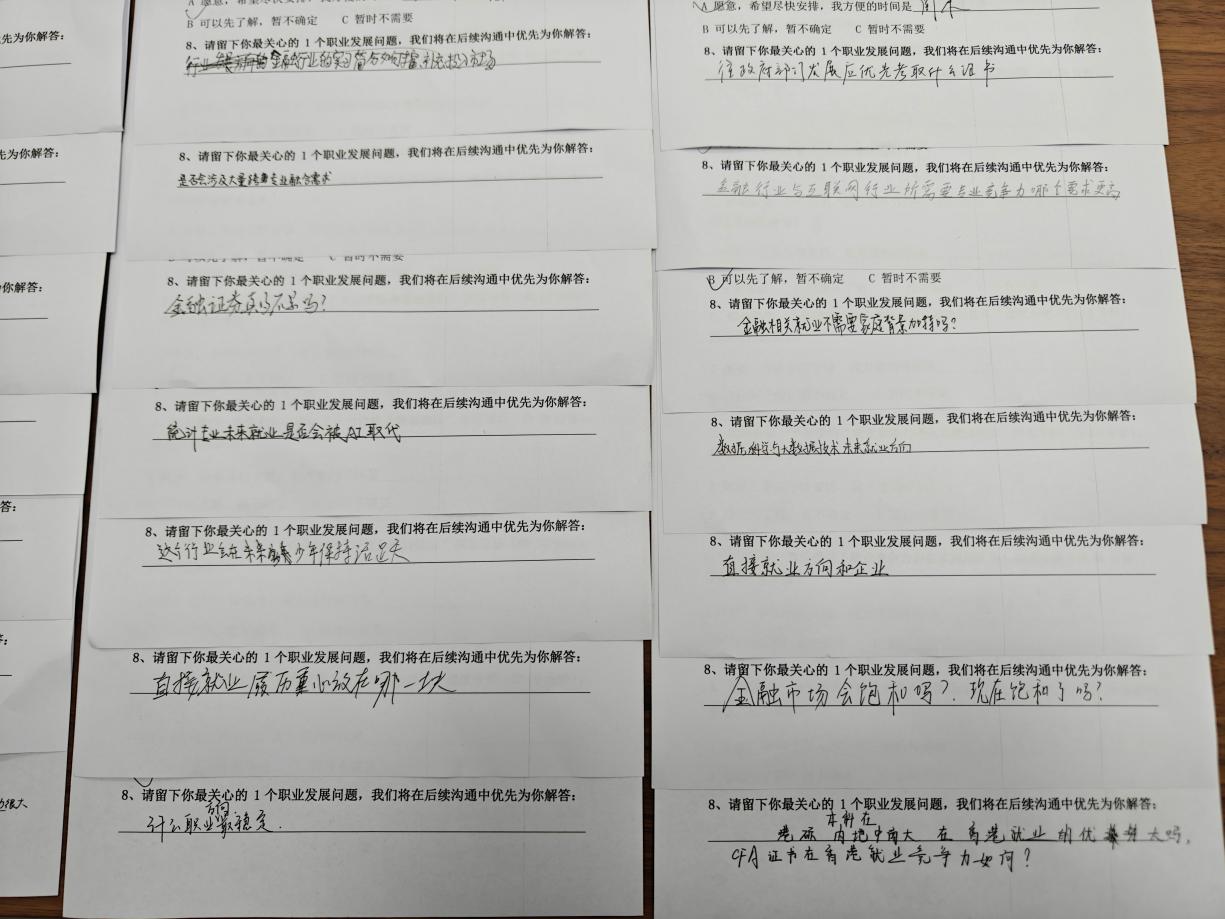 先为你解答:
先为你解答:
你解答:
答:
答:
很大
A 愿意,希望尽快安排,我
B 可以先了解,暂不确定 C 暂时不需要
8、请留下你最关心的 1 个职业发展问题,我们将在后续沟通中优先为你解答:
金融行业的实习
8、请留下你最关心的 1 个职业发展问题,我们将在后续沟通中优先为你解答:
是否会涉及大量跨专业融合需求
B 可以先了解,暂不确定 C 暂时不需要
8、请留下你最关心的 1 个职业发展问题,我们将在后续沟通中优先为你解答:
金融证券真的不景吗?
8、请留下你最关心的 1 个职业发展问题,我们将在后续沟通中优先为你解答:
统计专业未来就业是否会被AI取代
8、请留下你最关心的 1 个职业发展问题,我们将在后续沟通中优先为你解答:
这个行业会在未来多少年保持活跃
8、请留下你最关心的 1 个职业发展问题,我们将在后续沟通中优先为你解答:
直接就业履历重心放在哪一块
8、请留下你最关心的 1 个职业发展问题,我们将在后续沟通中优先为你解答:
什么职业方向最稳定.
A 愿意,希望尽快安排,我方便的时间是 周末
B 可以先了解,暂不确定 C 暂时不需要
8、请留下你最关心的 1 个职业发展问题,我们将在后续沟通中优先为你解答:
往政府部门发展应优先考取什么证书
8、请留下你最关心的 1 个职业发展问题,我们将在后续沟通中优先为你解答:
金融行业与互联网行业所需要专业竞争力哪个需求更高
B 可以先了解,暂不确定 C 暂时不需要
8、请留下你最关心的 1 个职业发展问题,我们将在后续沟通中优先为你解答:
金融相关就业不需要家庭背景加持吗?
8、请留下你最关心的 1 个职业发展问题,我们将在后续沟通中优先为你解答:
数据科学与大数据技术未来就业方向
8、请留下你最关心的 1 个职业发展问题,我们将在后续沟通中优先为你解答:
直接就业方向和企业
8、请留下你最关心的 1 个职业发展问题,我们将在后续沟通中优先为你解答:
金融市场会饱和吗?.现在饱和了吗?
8、请留下你最关心的 1 个职业发展问题,我们将在后续沟通中优先为你解答:
港硕 本科在内地中南大 在香港就业的优势大吗,
CFA证书在香港就业竞争力如何?